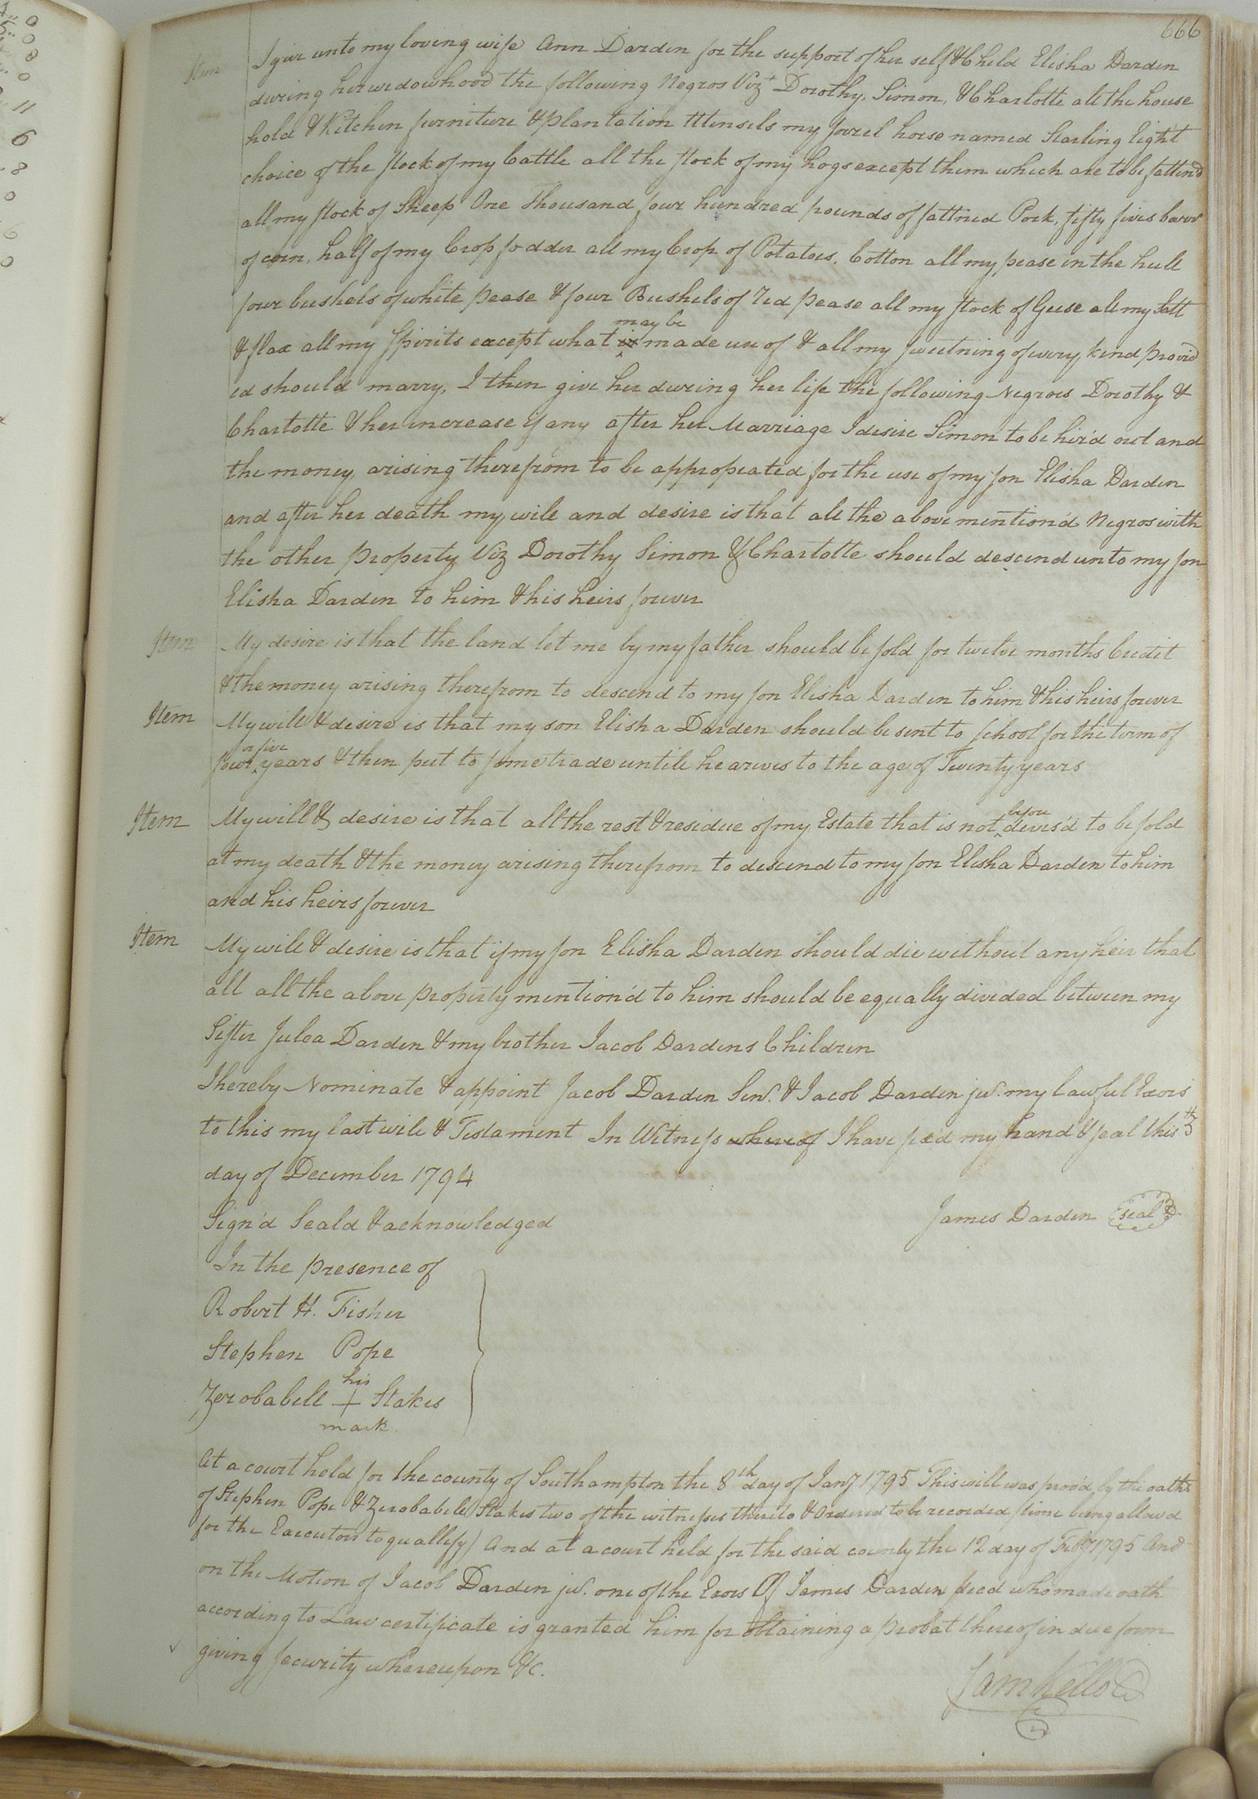 666
Item I give unto my loving wife Ann Darden for the support of her self & Child Elisha Darden
during her widowhood the following Negros Viz^t Dorothy, Simon, & Charlotte all the house
hold & Kitchen furniture & plantation Utensels my sorrel horse named Starling light
choice of the stock of my Cattle all the stock of my hogs except them which are to be fattend
all my stock of Sheep One thousand four hundred pounds of fattned Pork, fifty five barrs
of corn, half of my Crop fodder all my Crop of Potatoes, Cotton all my pease in the hull
four bushels of white pease & four Bushels of red pease all my stock of Geese all my Salt
& flax all my Spirits except what may be made use of & all my sweetning of every kind provid
ed should marry, I then give her during her life the following Negroes Dorothy &
Charlotte & her increase if any after her Marriage I desire Simon to be hir'd out and
the money, arising therefrom to be appropeated for the use of my son Elisha Darden
and after her death my will and desire is that all the above mention'd Negros with
the other property Viz Dorothy Simon & Charlotte should descend unto my son
Elisha Darden to him & his heirs forever
Item My desire is that the land let me by my father should be sold for twelve months Credit
& the money arising therefrom to descend to my son Elisha Darden to him & his heirs forever
Item My will & desire is that my son Elisha Darden should be sent to School for the term of
four or five years & then put to some trade untill he arives to the age of Twenty years
Item My will & desire is that all the rest & residue of my Estate that is not before devis'd to be sold
at my death & the money arising therefrom to descend to my son Elisha Darden to him
and his heirs forever
Item My will & desire is that if my son Elisha Darden should die without any heir that
all all the above property mention'd to him should be equally divided between my
Sister Julea Darden & my brother Jacob Dardens Children
I hereby Nominate & appoint Jacob Darden Senr. & Jacob Darden jur. my lawful Exors
to this my last will & Testament In Witness whereof I have sxed my hand & seal this 5th
day of December 1794
Sign'd Seald & acknowledged James Darden (seal)
In the presence of
Robert H. Fisher
Stephen Pope
his
Zerobabell + Stakes
mark
At a court held for the county of Southampton the 8th day of Jany 1795 This will was prov'd by the oaths
of Stephen Pope & Zerobabell Stakes two of the witnesses thereto & Ordered to be recorded (time being allowd
for the Executors to quallify) And at a court held for the said county the 12 day of Feby 1795 And
on the Motion of Jacob Darden jur. one of the Exors Of James Darden decd who made oath
according to Law certificate is granted him for obtaining a probat thereof in due form
giving security whereupon &c.
Sam Kello C